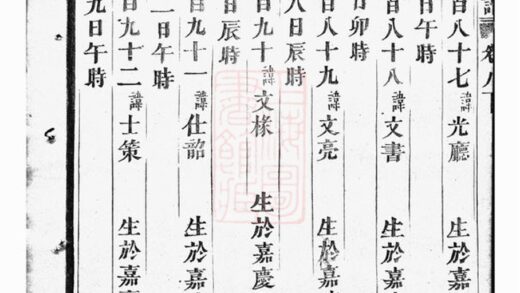 譜 卷八下
百八十七 諱光廳 生於嘉
日午時
百八十八 諱文書 生於嘉
日卯時
百八十九 諱文亮 生於嘉
八日辰時
百九十 諱文様 生於嘉慶
日辰時
百九十一 諱仕韶 生於嘉
一日午時
百九十二 諱士策 生於嘉慶
九日午時